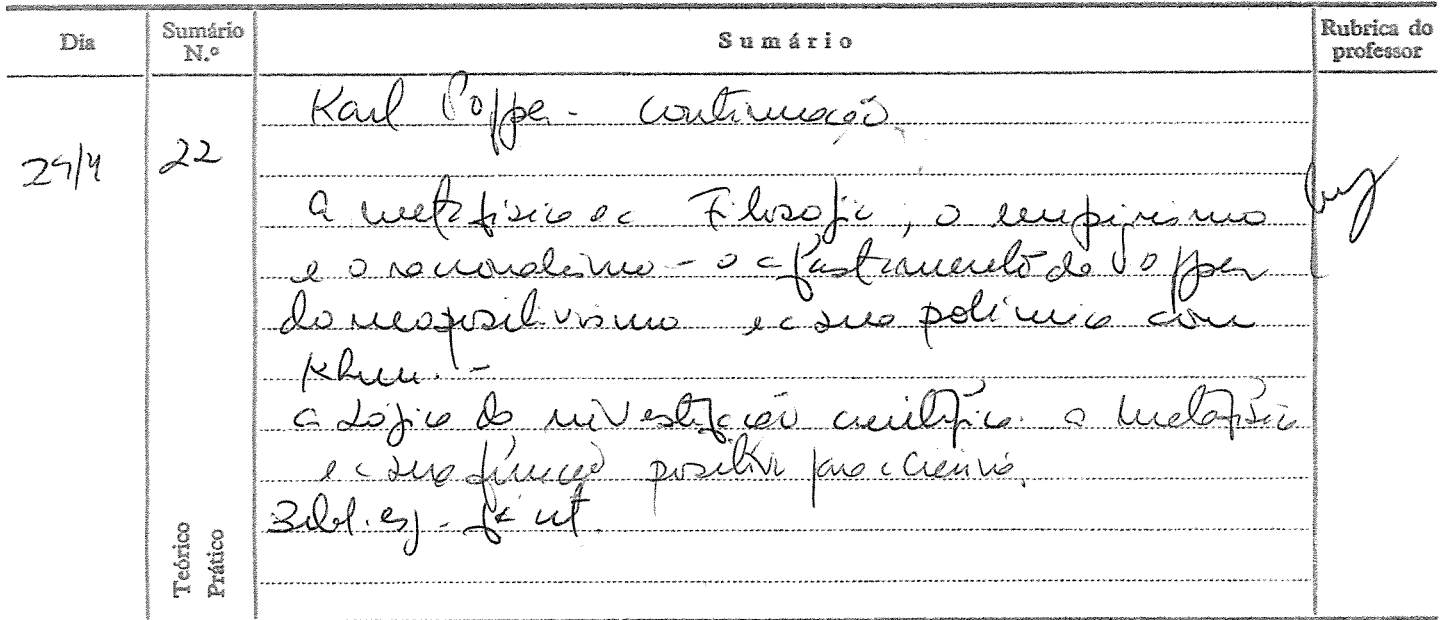 Dia
Sumário N.º
Sumário
Rubrica do professor
Karl Popper - continuação
22
a metafísica e a Filosofia, o empirismo
e o racionalismo - o afastamento de Popper
do neopositivismo e a sua polémica com
Khun. -
a Lógica da investigação científica. a metafísica
e a sua função positiva para a ciência.
Bibl. esp.
Teórico
Prático